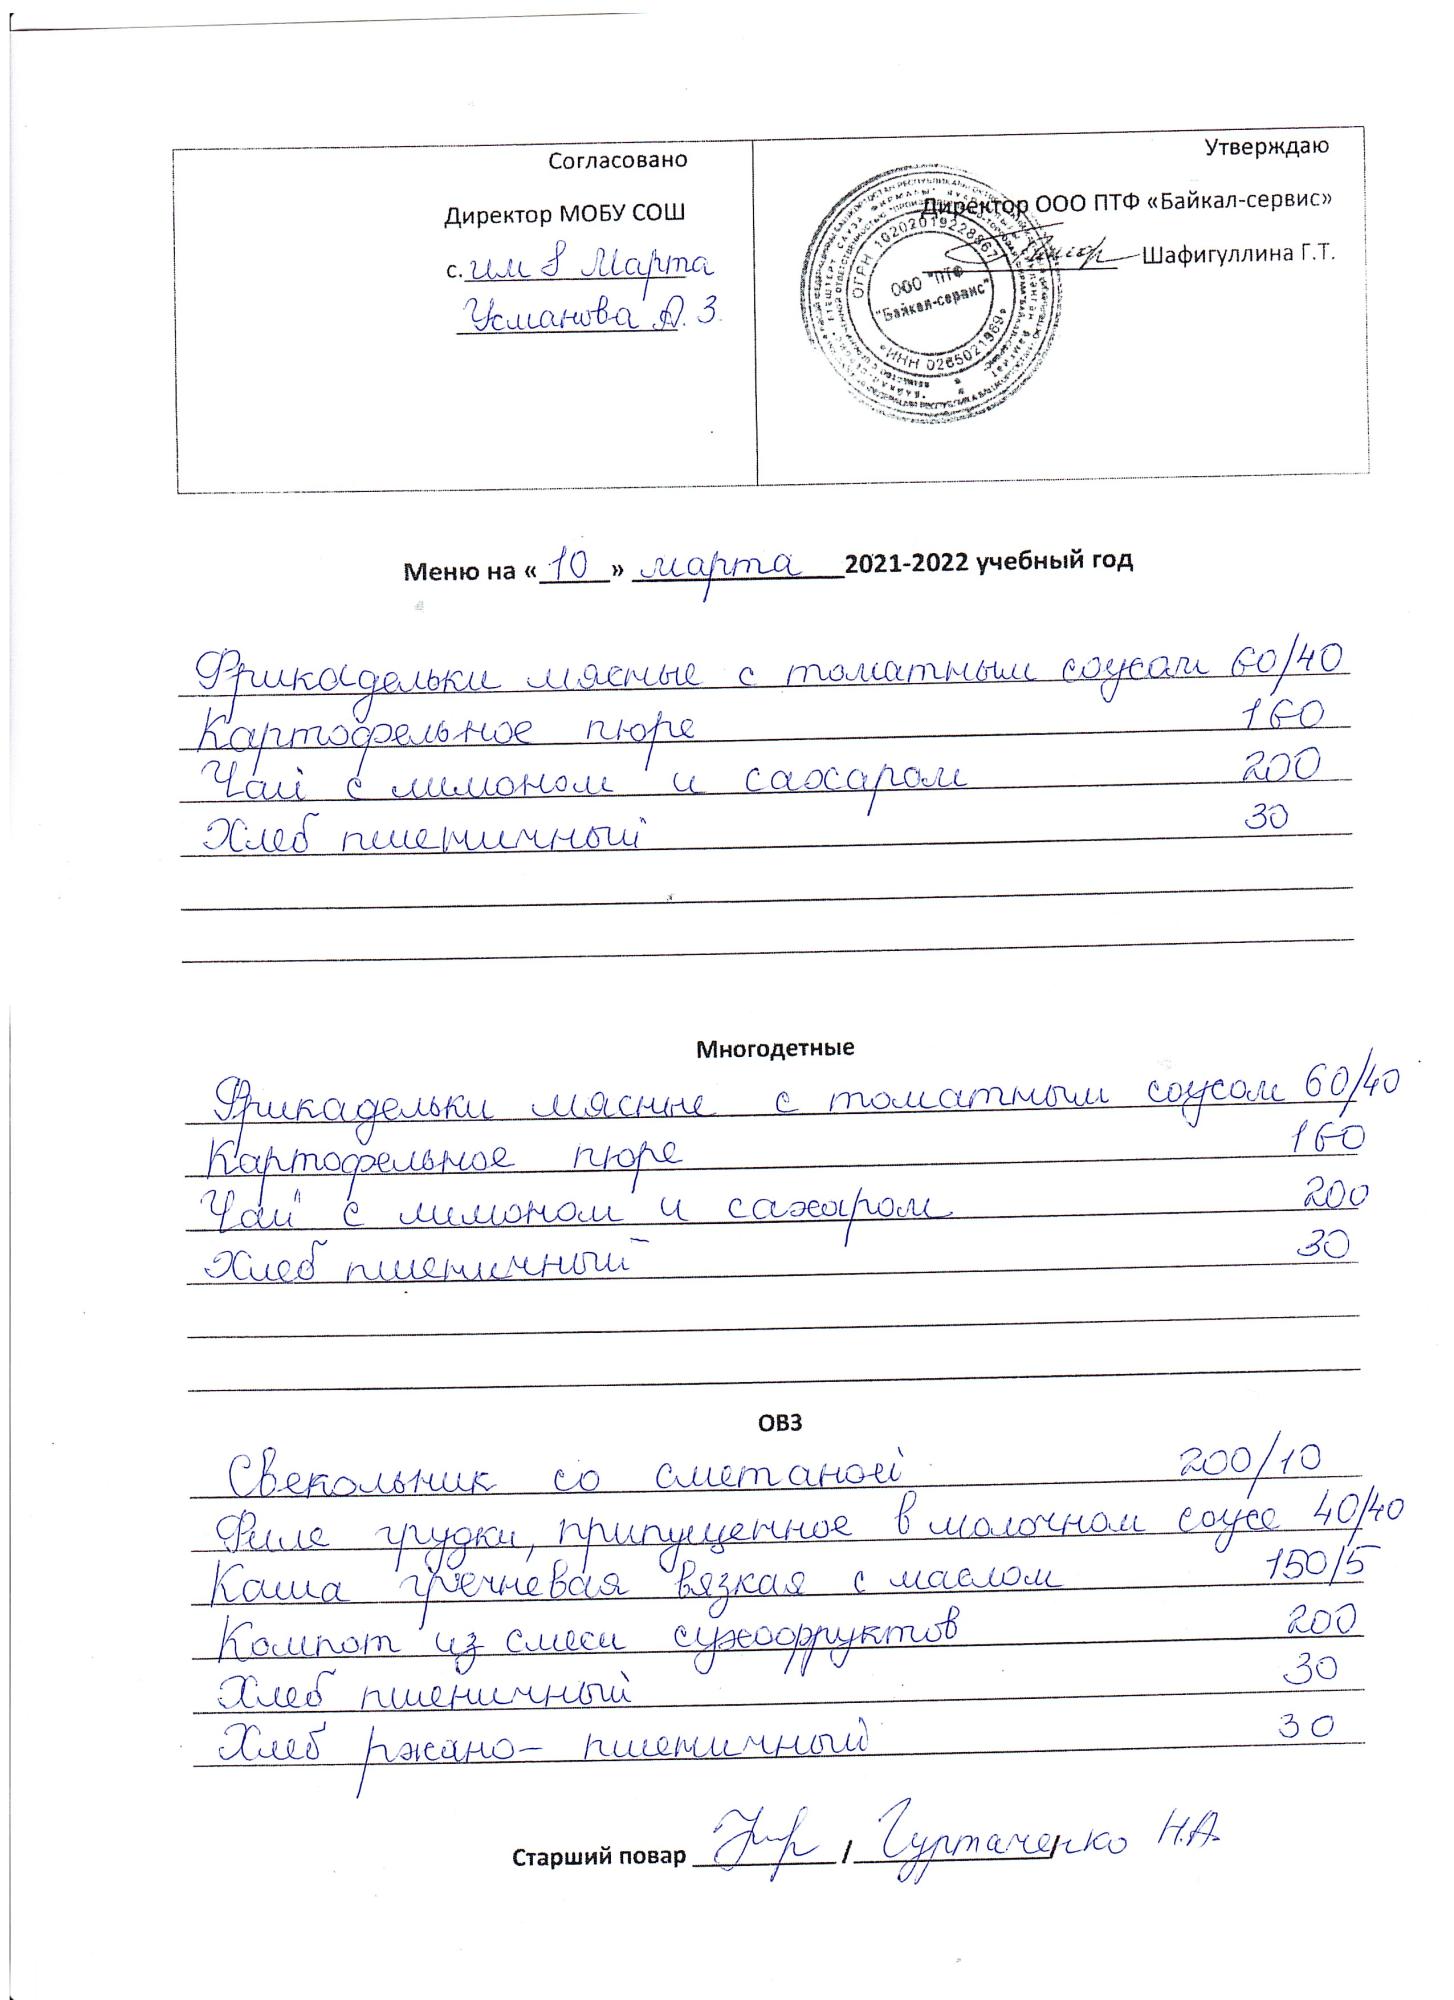 Согласовано
Директор МОБУ СОШ
с. им 8 Марта
Усманова А. З.
Утверждаю
Директор ООО ПТФ «Байкал-сервис»
Шафигуллина Г.Т.
ОГРН 1020201922896
ООО "ПТФ
"Байкал-сервис"
ИНН 0265021969
Меню на «10» марта 2021-2022 учебный год
Фрикадельки мясные с томатным соусом 60/40
Картофельное пюре 160
Чай с лимоном и сахаром 200
Хлеб пшеничный 30
Многодетные
Фрикадельки мясные с томатным соусом 60/40
Картофельное пюре 160
Чай с лимоном и сахаром 200
Хлеб пшеничный 30
ОВЗ
Свекольник со сметаной 200/10
Филе грудки, припущенное в молочном соусе 40/40
Каша гречневая вязкая с маслом 150/5
Компот из смеси сухофруктов 200
Хлеб пшеничный 30
Хлеб ржано- пшеничный 30
Старший повар / Гуртаченко Н.А.